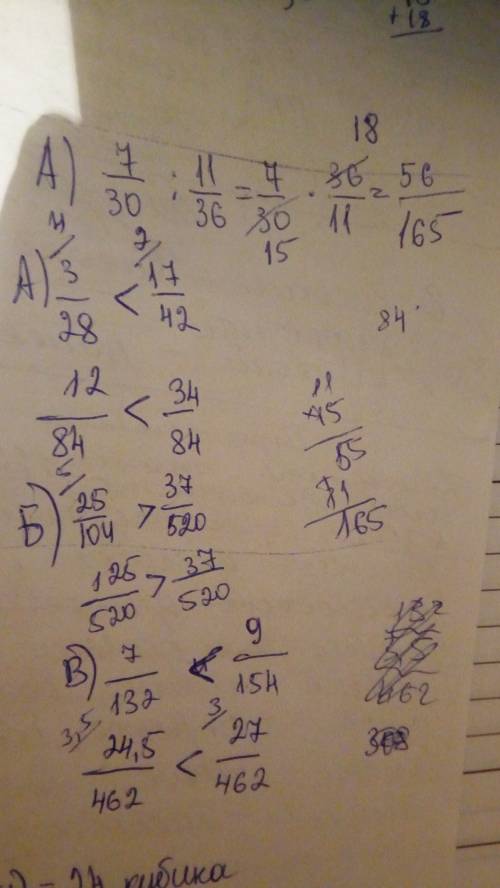 +18
18
А) 7/30 : 11/36 = 7/30 · 36/11 = 56/165
15
4 2
А) 3/28 < 17/42
84
12/84 < 34/84
11
15
55
11
165
5
Б) 25/104 > 37/520
125/520 > 37/520
В) 7/132 < 9/154
3,5 3
24,5/462 < 27/462
= 24 кубика